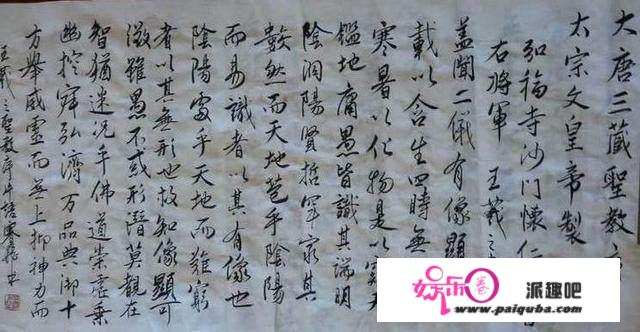 大唐三藏聖教序
太宗文皇帝製
弘福寺沙門懷仁
右將軍 王羲之
蓋聞二儀有像顯
載以含生四時無
寒暑以化物是以窺天
鑑地庸愚皆識其端明
陰洞陽賢哲罕窮其
數然而天地苞乎陰陽
而易識者以其有像也
陰陽處乎天地而難窮
者以其無形也故知像顯可
徵雖愚不或形潛莫覩在
智猶迷況乎佛道崇虛乘
幽控寂弘濟万品典御十
方舉威靈而無上抑神力而
王羲之聖教序
娱乐卷
派趣吧
www.paiquba.com